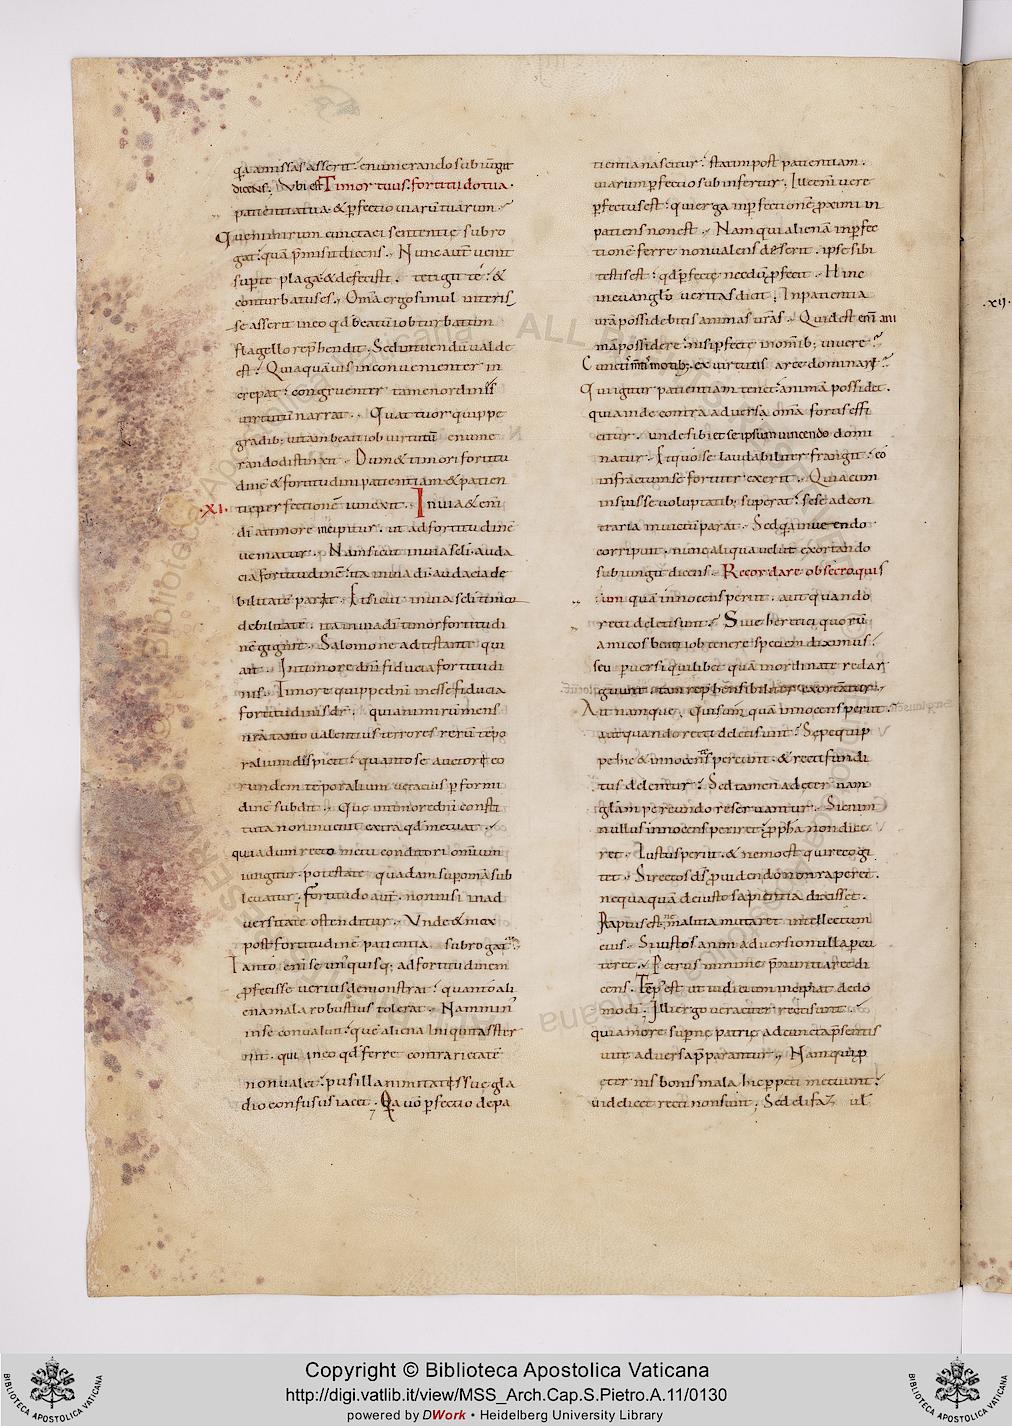 qua amissas asserit. enumerando subiungit
dicens. Vbi est Timor tuus. fortitudo tua.
patientia tua. & pfectio uiarū tuarum.
Quenimirum cunctaei sententię subro
gat. quā pmisit dicens. Nunc aut uenit
supte plaga & defecisti. tetigit te. &
conturbatus es. Oma ergo simul interis
se asserit in eo qd beatū iob turbatum
flagello rephendit. Sed intuendū ualde
est. Quia quāuis inconuenienter in
crepat. congruenter tamen ordinis
uirtutū narrat. Quattuor quippe
gradib; uitam beati iob uirtutū enume
rando distinxit. Dum & timori fortitu
dinē & fortitudini patientiam & patien
tię perfectionē iunxit. In uia & enī
.XI.
di a timore incipitur. ut ad fortitudinē
ueniatur. Nam sicut in uia scli. auda
cia fortitudinē. ita in uia di. audacia de
bilitatē parat. Et sicut in uia scli timor
debilitatē. ita in uia di timor fortitudi
nē gignit. Salomone adtestante qui
ait. In timore dni fiducia fortitudi
nis. Timore quippe dni inesse fiducia
fortitudinis dr. quia nimirū mens
nra tanto ualentius terrores rerū tepo
ralium despicit. quanto se auctori eo
rundem teporalium ueracius p formi
dinē subdit. Que in timore dni consti
tuta non inuenit extra qd metuat.
quia dum recto metu conditori omium
iungitur. potestate quadam sup omā sub
leuatur. Fortitudo aut. non nisi in ad
uersitate ostenditur. Vnde & mox
post fortitudinē patientia subrogat.
Tanto eni se unusquisq; ad fortitudinem
pfecisse uerius demonstrat. quanto ali
ena mala robustius tolerat. Nam min
in se conualuit. que aliena iniquitas ster
nit. qui in eo qd ferre contrarietatē
non ualet. pusillanimitatis sue gla
dio confusus iacet. Qa uo pfectio de pa
tientia nascitur. statim post patientiam.
uiarum pfectio subinfertur. Ille eni uere
pfectus est. qui erga inpfectionē proximi in
patiens non est. Nam qui alienā inpfec
tionē ferre non ualens deserit. ipse sibi
testis est. qd pfecte necdū pfecit. Hinc
in euanglo ueritas dicit. In patientia
urā possidebitis animas uras. Quid est enī ani
mā possidere. nisi pfecte in omib; uiuere.
Cunctisq; mentis motib; ex uirtutis arce dominari.
Qui igitur patientiam tenet. animā possidet.
quia inde contra aduersa oma fortis effi
citur. unde sibi et se ipsum uincendo domi
natur. Et quo se laudabiliter frangit. eo
infractum se fortiter exerit. Quia cum
in suis se uoluptatib; superat. sese ad con
traria inuictū parat. Sed qa inuetendo
corripuit. nunc aliqua uelut exortando
subiungit dicens. Recordare obsecro quis
um quā innocens periit. aut quando
recti deleti sunt. Siue heretici quorū
amicos beati iob tenere speciem diximus.
seu puersi quilibet quā inordinate redar
guunt. tam rephensibiliter exortantur.
Ait namque. Quis umquā innocens periit.
aut quando recti deleti sunt. Sępe quip
pe hic & innocens pereunt. & recti fundi
tus delentur. Sed tamen ad eternam
glām pereundo reseruantur. Si enim
nullus innocens periret. ppha non dice
ret. Iustus periit. & nemo est qui recogi
tet. Si rectos ds puidendo non raperet.
nequaquā de iusto sapientia dixisset.
Raptus est. ne malitia mutaret intellectum
eius. Si iustos animaduersio nulla pcu
teret. Petrus minime pnuntiaret di
cens. Temp est ut iudicium incipiat de do
mo di. Illi ergo ueraciter recti sunt.
qui amore supne patrie ad cuncta psentis
uite aduersa pparantur. Nam qui p
eternis bonis mala hic ppeti metuunt.
uidelicet recti non sunt. Sed elifaz uł
.XII.
Copyright © Biblioteca Apostolica Vaticana
http://digi.vatlib.it/view/MSS_Arch.Cap.S.Pietro.A.11/0130
powered by DWork • Heidelberg University Library